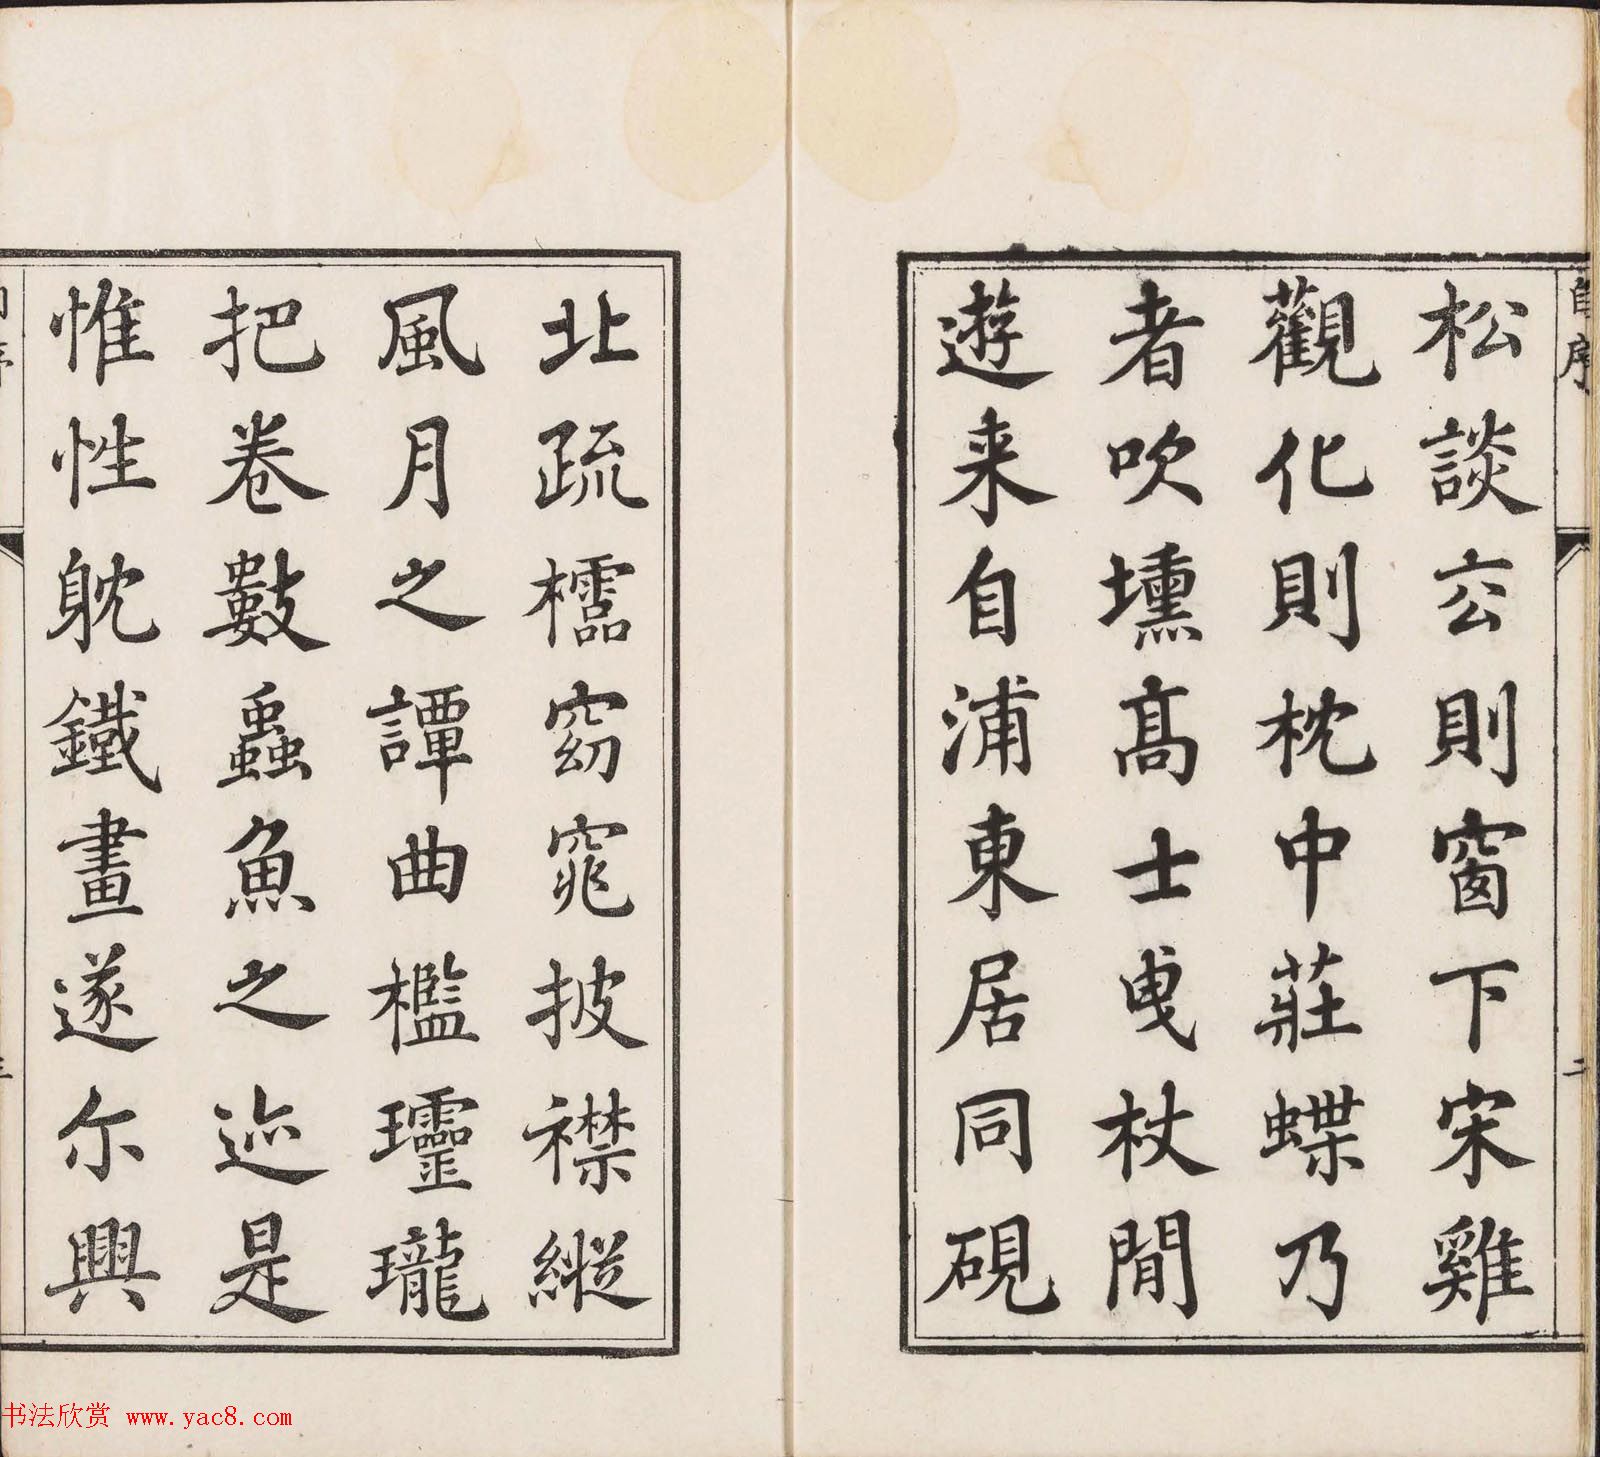 自序
松談玄則窗下宋雞
觀化則枕中莊蝶乃
者吹壎高士曳杖閒
遊来自浦東居同硯
二
北疏櫺窈窕披襟縱
風月之譚曲檻瓏瓏
把卷數蟲魚之迹是
惟性躭鐵畫遂尓興
三
书法欣赏 www.yac8.com